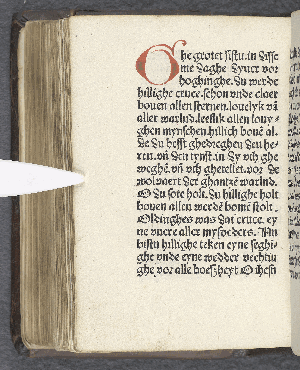 Ghe grotet sistu. in disse
me daghe dyner vor
hoghinghe. Du werde
hillighe cruce. schon unde claer
bouen allen sternen. louelyk vñ
aller warlnd. leeflik allen louy⸗
ghen mynschen. hillich bouē al.
De du hefft ghedreghen den he⸗
ren. vñ den tynsz. in dy vth ghe
weghē. vñ vth ghetellet. vor de
wolvaert der ghantzē warlnd.
O du sote holt. du hillighe holt
bouen allen werdē bomē stolt.
Oldinghes was dat cruce. ey
ne vnere aller myszdeders. Nu
bistu hillighe teken eyne seghi⸗
ghe unde eyne wedder vechtin⸗
ghe vor alle boeszheyt O ihesu